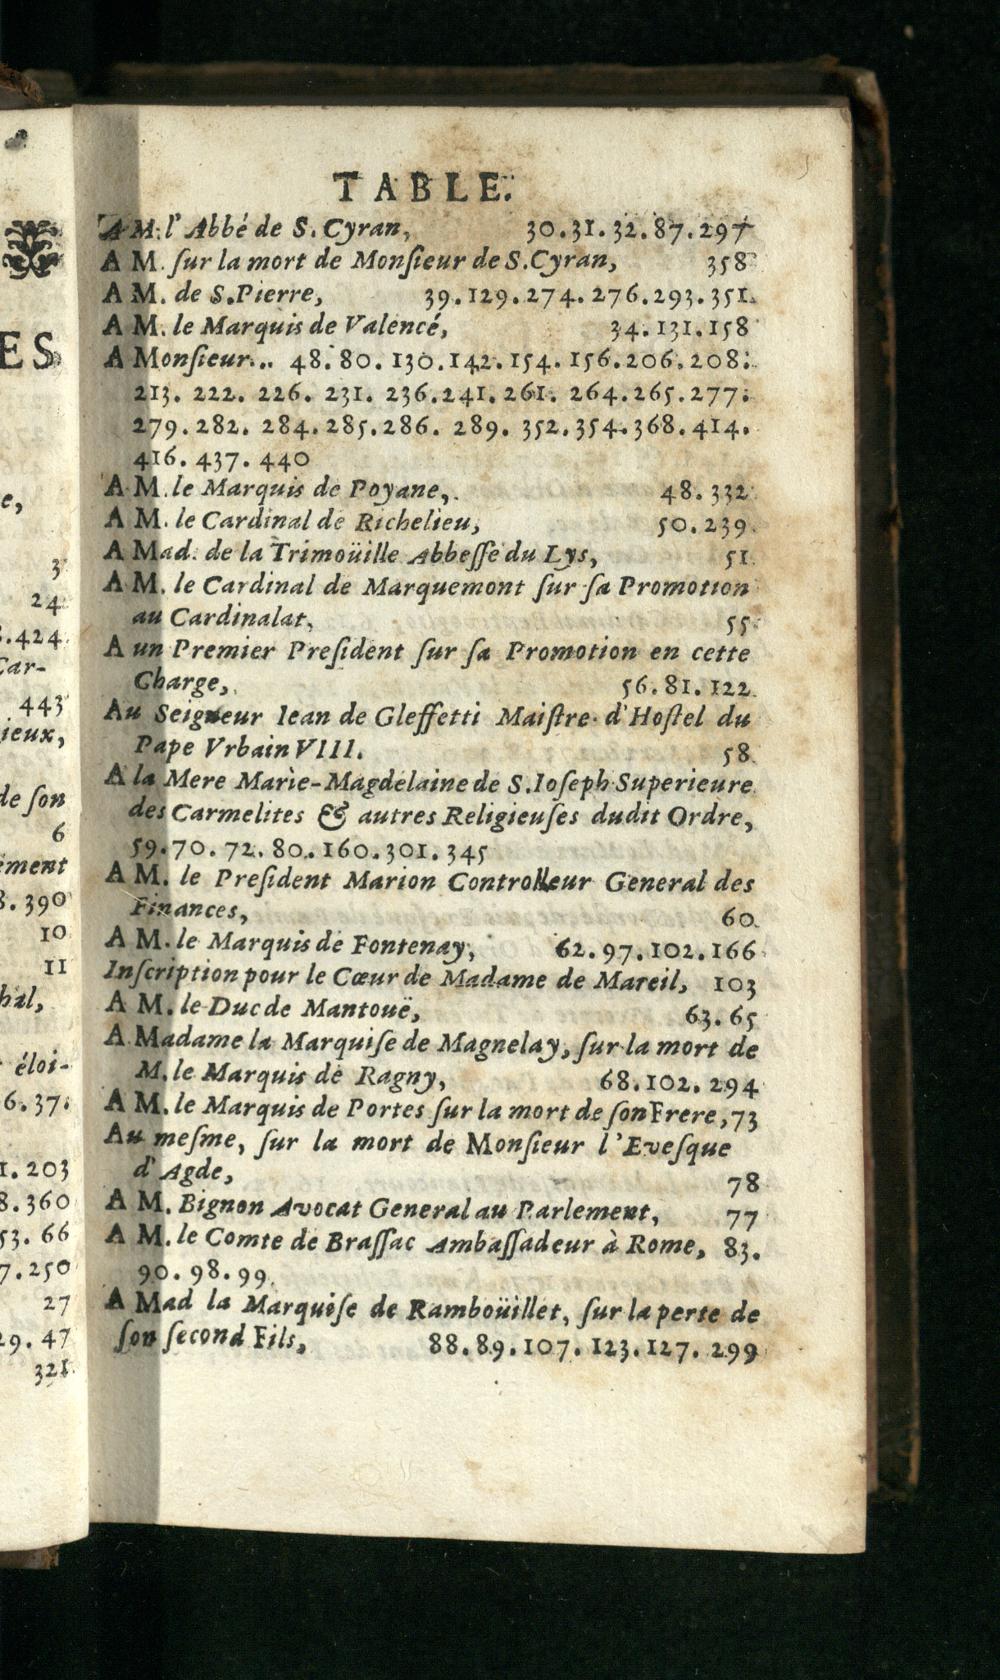 TABLE.
A M. l'Abbé de S. Cyran, 30.31.32.87.297
A M. ſur la mort de Monſieur de S. Cyran, 358
A M. de S. Pierre, 39.129.274.276.293.351.
A M. le Marquis de Valencé, 34.131.158
A Monſieur... 48.80.130.142.154.156.206.208.
213. 222. 226. 231. 236.241.261. 264.265.277.
279.282. 284.285.286. 289. 352.354.368.414.
416. 437. 440
A M. le Marquis de Poyane, 48.332
A M. le Cardinal de Richelieu, 50.239.
A Mad. de la Trimoüille Abbeſſe du Lys, 51
A M. le Cardinal de Marquemont ſur ſa Promotion
au Cardinalat, 55
A un Premier Preſident ſur ſa Promotion en cette
Charge, 56.81.122.
Au Seigneur Iean de Gleffetti Maiſtre d'Hoſtel du
Pape Vrbain VIII. 58.
A la Mere Marie-Magdelaine de S. Ioſeph Superieure
des Carmelites & autres Religieuſes dudit Ordre,
59.70.72.80.160.301.345
A M. le Preſident Marion Controlleur General des
Finances, 60.
A M. le Marquis de Fontenay, 62.97.102.166
Inſcription pour le Cœur de Madame de Mareil, 103
A M. le Duc de Mantouë, 63.65
A Madame la Marquiſe de Magnelay, ſur la mort de
M. le Marquis de Ragny, 68.102.294
A M. le Marquis de Portes ſur la mort de ſon Frere, 73
Au meſme, ſur la mort de Monſieur l'Eveſque
d'Agde, 78
A M. Bignon Avocat General au Parlement, 77
A M. le Comte de Braſſac Ambaſſadeur à Rome, 83.
90.98.99.
A Mad la Marquiſe de Ramboüillet, ſur la perte de
ſon ſecond Fils, 88.89.107.123.127.299
ES
e,
3
24
.424
Car-
443
ieux,
de ſon
6
ément
8.390
10
11
hal,
éloi-
6.37.
1.203
8.360
53. 66
7.250
27
29. 47
321